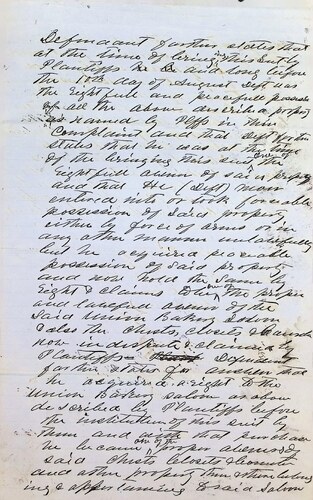 Defendant further states that
at the time of bringing this suit by
Plaintiffs he is and long before
the 18th day of August Deft was
the rightfull and peacefull possessor
of all the above described property
as named by Plffs in their
Complaint and that Deft further
states that he was at the time
of the bringing this suit the
rightfull owner of said property
and that He (Deft) never
entered into or took forceable
possession of said property
either by force of arms or in
any other manner unlawfully
but he acquired peaceable
possession of said property
and now hold the same by
right & claims to be the proper
and lawfull owner of the
said Union Bakery Saloon
& also the Chests, Closets &
now in dispute & claimed by
Plaintiffs Defendant
further states for answer that
he acquired a right to the
Union Bakery saloon as above
described by Plaintiffs before
the institution of this suit by
them and that
he became proper owner of
said Chests Closets &
and other property then & there belong
ing & appertaining to said saloon